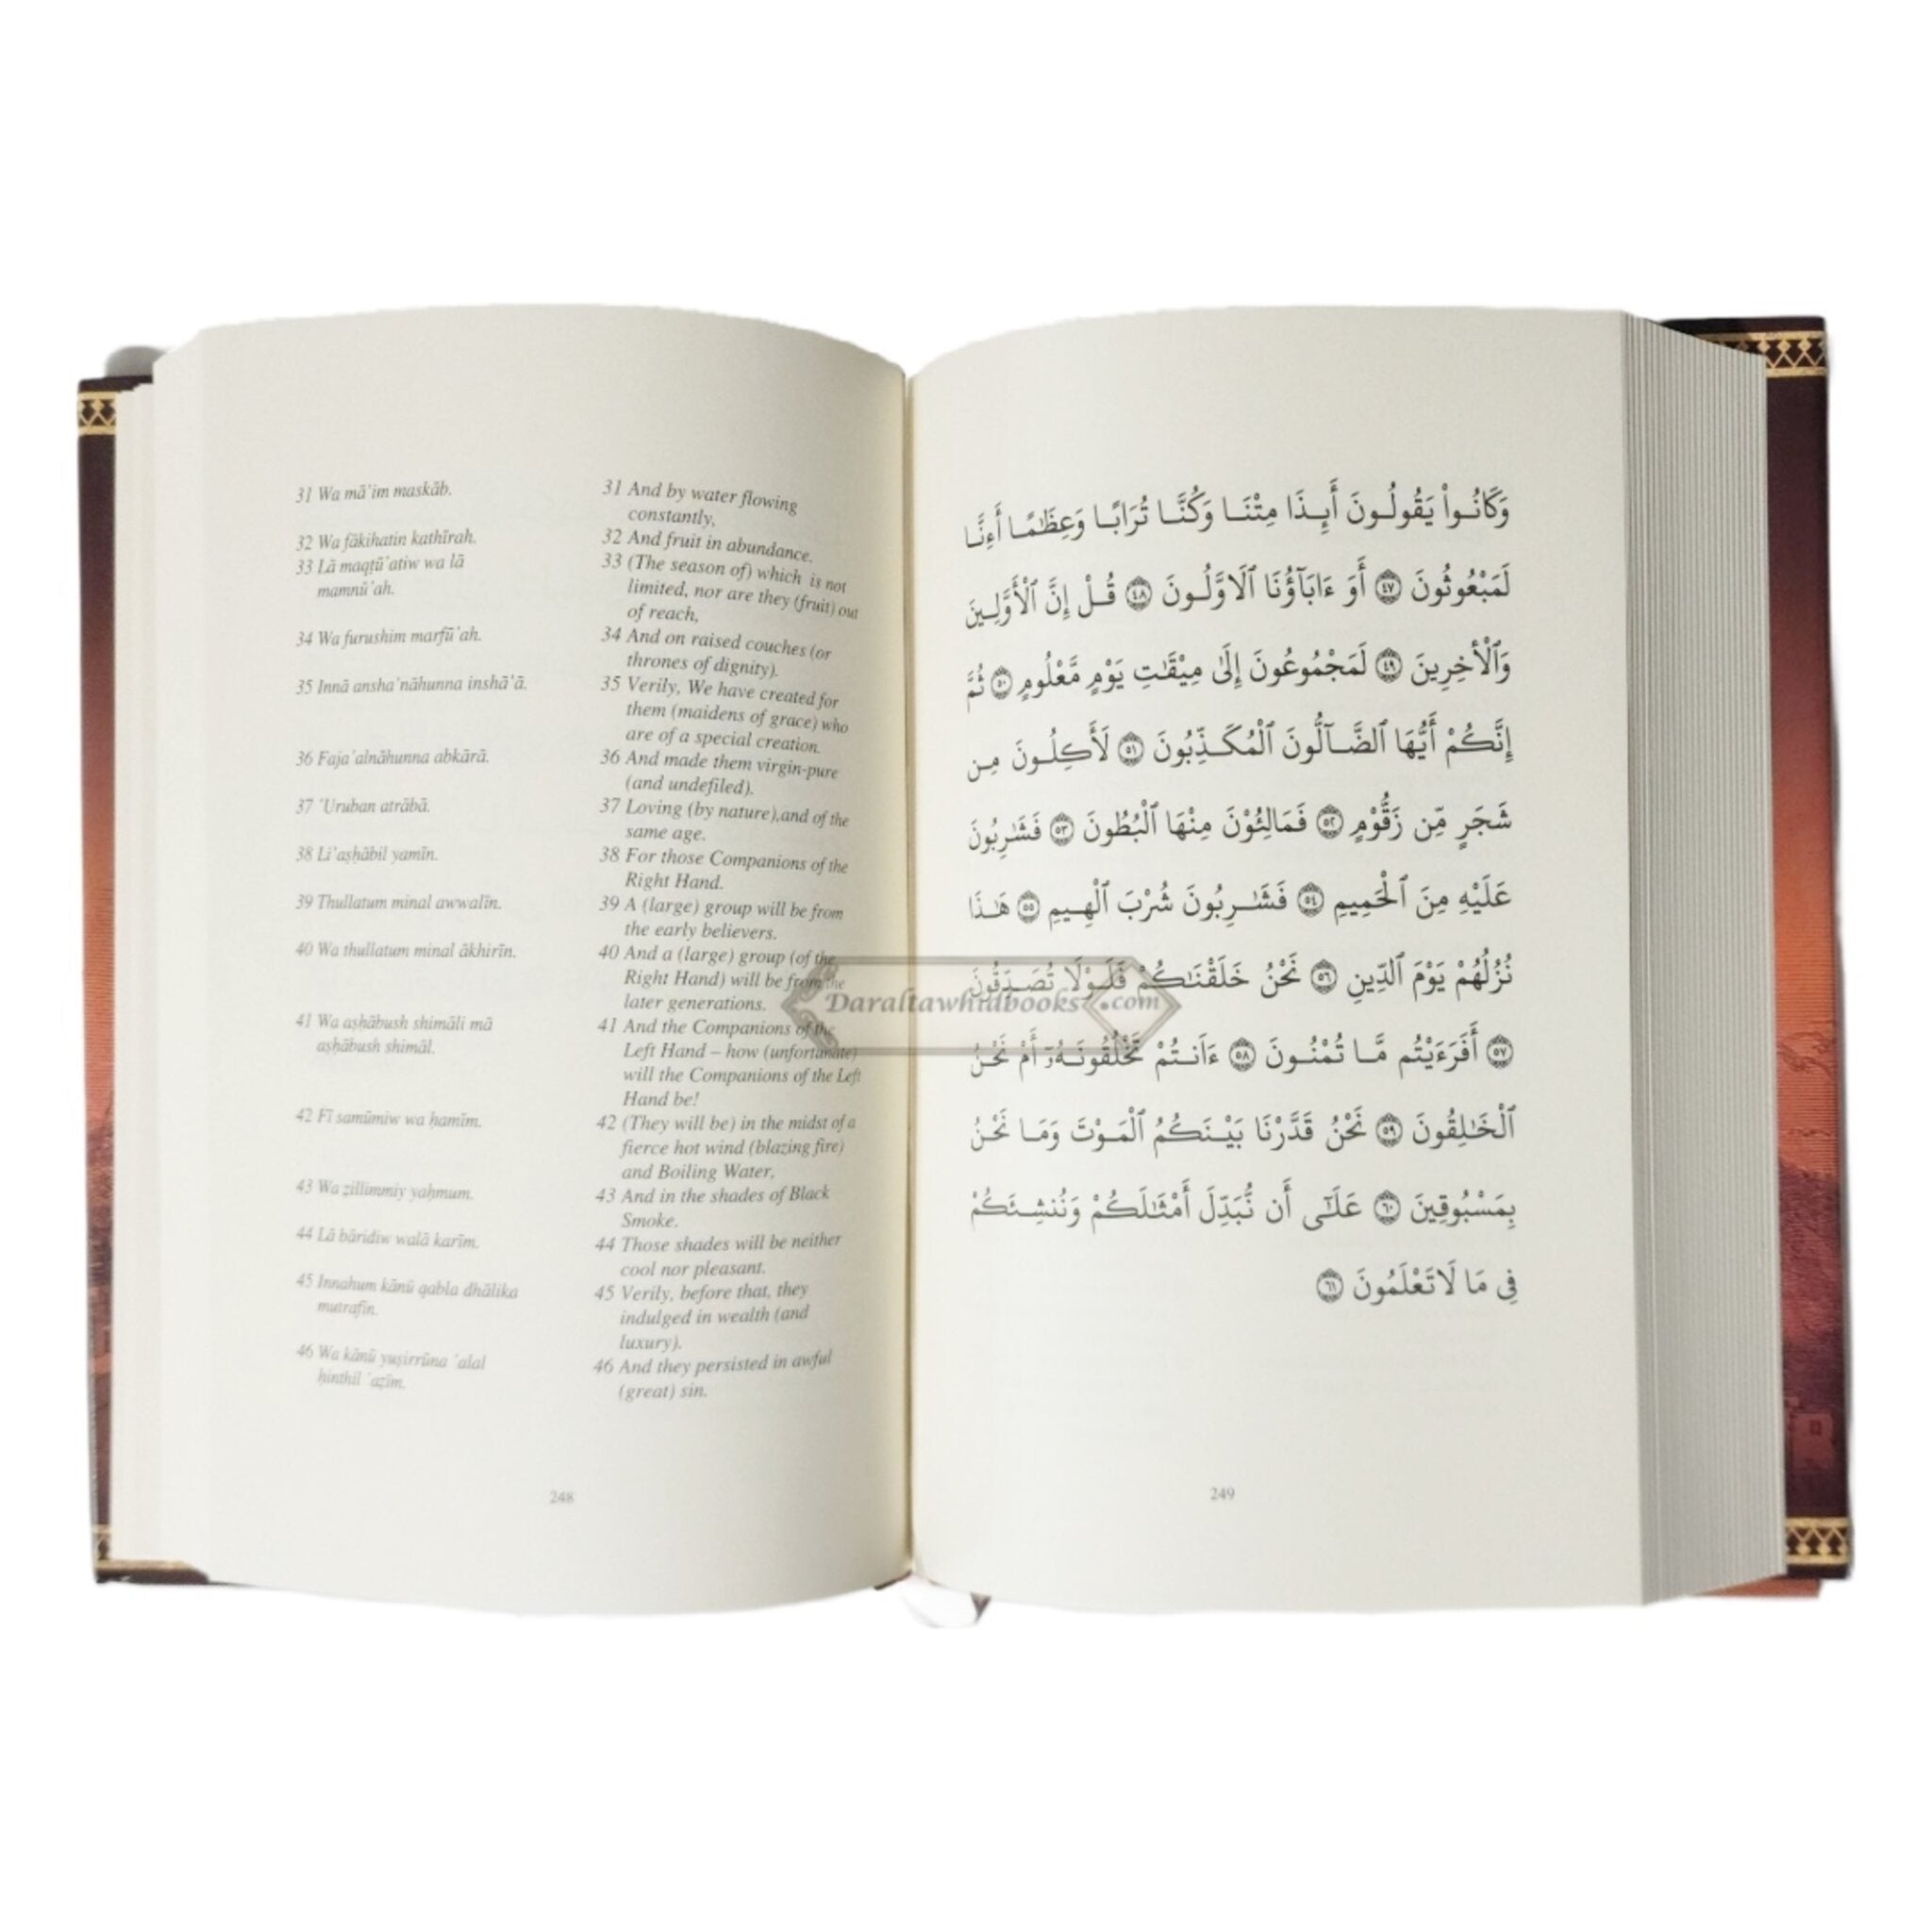 31 Wa mā'im maskāb.
32 Wa fākihatin kathīrah.
33 Lā maqṭū'atiw wa lā
mamnū'ah.
34 Wa furushim marfū'ah.
35 Innā ansha'nāhunna inshā'ā.
36 Faja'alnāhunna abkārā.
37 'Uruban atrābā.
38 Li'aṣḥābil yamīn.
39 Thullatum minal awwalīn.
40 Wa thullatum minal ākhirīn.
41 Wa aṣḥābush shimāli mā
aṣḥābush shimāl.
42 Fī samūmiw wa ḥamīm.
43 Wa ẓillimmiy yaḥmum.
44 Lā bāridiw walā karīm.
45 Innahum kānū qabla dhālika
mutrafīn.
46 Wa kānū yuṣirrūna 'alal
ḥinthil 'aẓīm.
31 And by water flowing
constantly,
32 And fruit in abundance.
33 (The season of) which is not
limited, nor are they (fruit) out
of reach,
34 And on raised couches (or
thrones of dignity).
35 Verily, We have created for
them (maidens of grace) who
are of a special creation.
36 And made them virgin-pure
(and undefiled).
37 Loving (by nature),and of the
same age.
38 For those Companions of the
Right Hand.
39 A (large) group will be from
the early believers.
40 And a (large) group (of the
Right Hand) will be from the
later generations.
41 And the Companions of the
Left Hand – how (unfortunate)
will the Companions of the Left
Hand be!
42 (They will be) in the midst of a
fierce hot wind (blazing fire)
and Boiling Water,
43 And in the shades of Black
Smoke.
44 Those shades will be neither
cool nor pleasant.
45 Verily, before that, they
indulged in wealth (and
luxury).
46 And they persisted in awful
(great) sin.
248
وَكَانُوا۟ يَقُولُونَ أَئِذَا مِتْنَا وَكُنَّا تُرَابًا وَعِظَٰمًا أَءِنَّا
لَمَبْعُوثُونَ ٤٧ أَوَ ءَابَآؤُنَا ٱلْأَوَّلُونَ ٤٨ قُلْ إِنَّ ٱلْأَوَّلِينَ
وَٱلْأَخِرِينَ ٤٩ لَمَجْمُوعُونَ إِلَىٰ مِيقَٰتِ يَوْمٍ مَّعْلُومٍ ٥٠ ثُمَّ
إِنَّكُمْ أَيُّهَا ٱلضَّآلُّونَ ٱلْمُكَذِّبُونَ ٥١ لَأَكِلُونَ مِن
شَجَرٍ مِّن زَقُّومٍ ٥٢ فَمَالِئُونَ مِنْهَا ٱلْبُطُونَ ٥٣ فَشَٰرِبُونَ
عَلَيْهِ مِنَ ٱلْحَمِيمِ ٥٤ فَشَٰرِبُونَ شُرْبَ ٱلْهِيمِ ٥٥ هَٰذَا
نُزُلُهُمْ يَوْمَ ٱلدِّينِ ٥٦ نَحْنُ خَلَقْنَٰكُمْ فَلَوْلَا تُصَدِّقُونَ
٥٧ أَفَرَءَيْتُم مَّا تُمْنُونَ ٥٨ ءَأَنتُمْ تَخْلُقُونَهُۥٓ أَمْ نَحْنُ
ٱلْخَٰلِقُونَ ٥٩ نَحْنُ قَدَّرْنَا بَيْنَكُمُ ٱلْمَوْتَ وَمَا نَحْنُ
بِمَسْبُوقِينَ ٦٠ عَلَىٰٓ أَن نُّبَدِّلَ أَمْثَٰلَكُمْ وَنُنشِئَكُمْ
فِى مَا لَا تَعْلَمُونَ ٦١
249
Daraltawhidbooks.com